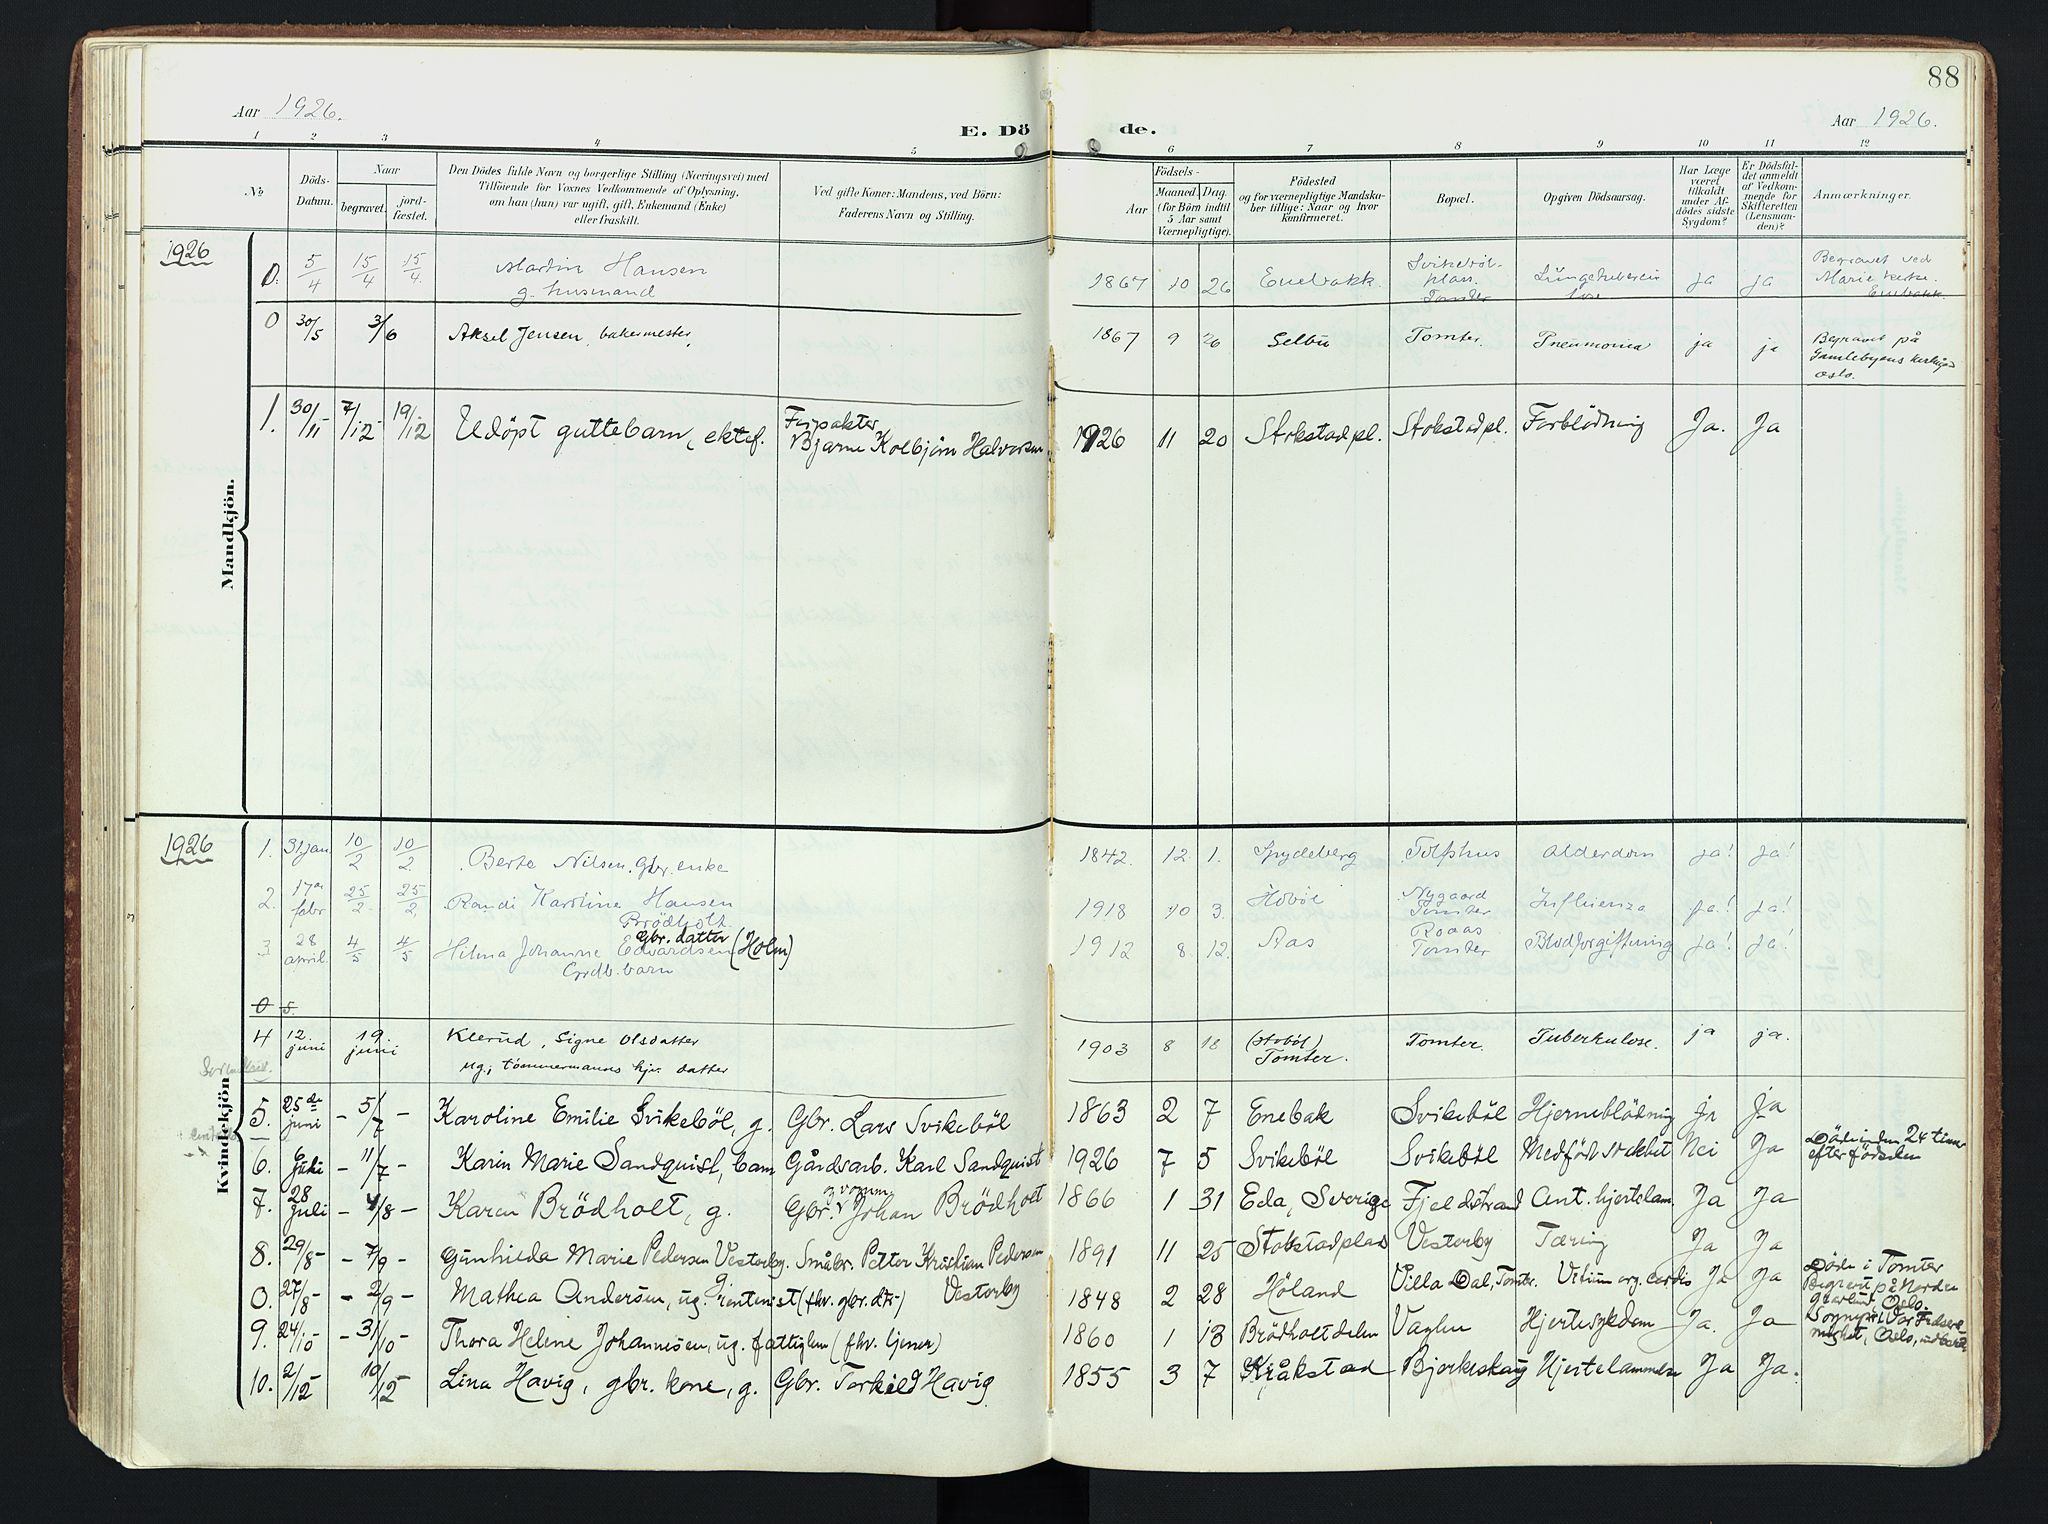 88
Aar 1926.
E. Dö de.
Aar 1926.
1 2 3 4 5 6 7 8 9 10 11 12
No
Döds-Datum.
Naar
begravet.
jord-fæstet.
Den Dödes fulde Navn og borgerlige Stilling (Næringsvei) med
Tilföiende for Voxnes Vedkommende af Oplysning,
om han (hun) var ugift, gift, Enkemand (Enke)
eller fraskilt.
Ved gifte Koner: Mandens, ved Börn:
Faderens Navn og Stilling.
Födsels-
Aar
Maaned Dag
(for Börn indtil
5 Aar samt
Værnepligtige).
Födested
og for værnepligtige Mandska-
ber tillige: Naar og hvor
konfirmeret.
Bopæl.
Opgiven Dödsaarsag.
Har Læge
været
tilkaldt
under Af-
dödes sidste
Sygdom?
Er Dödsfal-
det anmeldt
af Vedkom-
mende for
Skifteretten
(Lensman-
den)?
Anmærkninger.
Mandkjön.
1926
0. 5/4 15/4 15/4 Martin Hansen g. husmand 1867 10 26 Enebakk. Svikebøl-plan. Tomter ja ja Begravet ved Marie kirke. Enebakk.
0 30/5 3/6 Aksel Jensen, bakermester, 1867 9 26 Selbu Tomter. Pneumonia ja ja Begravet på Gamlebyens Oslo.
1. 30/11 7/12 19/12 Udöpt guttebarn, ektef. Bjarne Kolbjörn Halvorsen 1926 11 20 Stokstad pl. Stokstad pl. Forblödning Ja. Ja
Kvindekjön
1926
1. 31 jan 10/2 10/2 Berte Nilsen. Gbr. enke 1842. 12. 1. Spydeberg Tolfshus Alderdom ja! ja!
2. 17de febr 25/2. 25/2. Randi Karoline Hansen Brödholt. 1918 10 3. Hobøl Nygaard Tomter Influenza ja! ja!
3 28 april. 4/5 4/5 Hilma Johanne Edvardsen (Holm) Gbr. datter Grdb. barn 1912 8. 12. Aas Roaas Tomter Blodforgiftning ja! ja!
0 5.
4 12. juni 19. juni Klerud, Signe Olsdatter ug; tømmermanns hjv. datter 1903 8 18 (Hobøl) Tomter. Tomter. Tuberkulose. ja ja.
5. 25de juni - 5/7 - Karoline Emilie Svikebøl, g. Gbr. Lars Svikebøl 1863 2 7 Enebak Svikebøl Hjerneblödning ja ja
6. 6 Juli - 11/7 - Karin Marie Sandquist, barn Gårdsarb. Karl Sandquist 1926 7 5 Svikebøl Svikebøl Medfödt Nei Ja Döde inden 24 timer efter födselen
7. 28 Juli - 4/8 - Karen Brödholt, g. Gbr. Johan Brödholt 1866 1 31 Eda, Sverige Fjeldstrand Ant. hjertelam. Ja Ja
8. 29/8 - - 7/9 - Gunhilda Marie Pedersen Vesterby. Småbr. Petter Kristian Pedersen Vestorby 1891 11 25 Stokstadplas Vestorby Tæring Ja Ja
0. 27/8 - - 2/9 - Mathea Andersen, ug. rentenist (fhv. gbr. dtr-) 1848 2 28 Höland Villa Dal, Tomter. Vitium org. cordis Ja Ja Döde i Tomter Begravet på Nordre gravlund, Oslo.
9. 24/10 - 31/10 - Thora Helene Johannesen, ug. fattiglem (fhv. tjener) 1860 1 13 Brödholtdelen Vaglen Hjertesykdom Ja. Ja Vor Frelsers Oslo,
10. 2/12 - 10/12 - Lina Havig, gbr. kone, g. Gbr. Torkild Havig 1855 3 7 Kråkstad Bjerkeskaug Hjertelammelse Ja Ja.